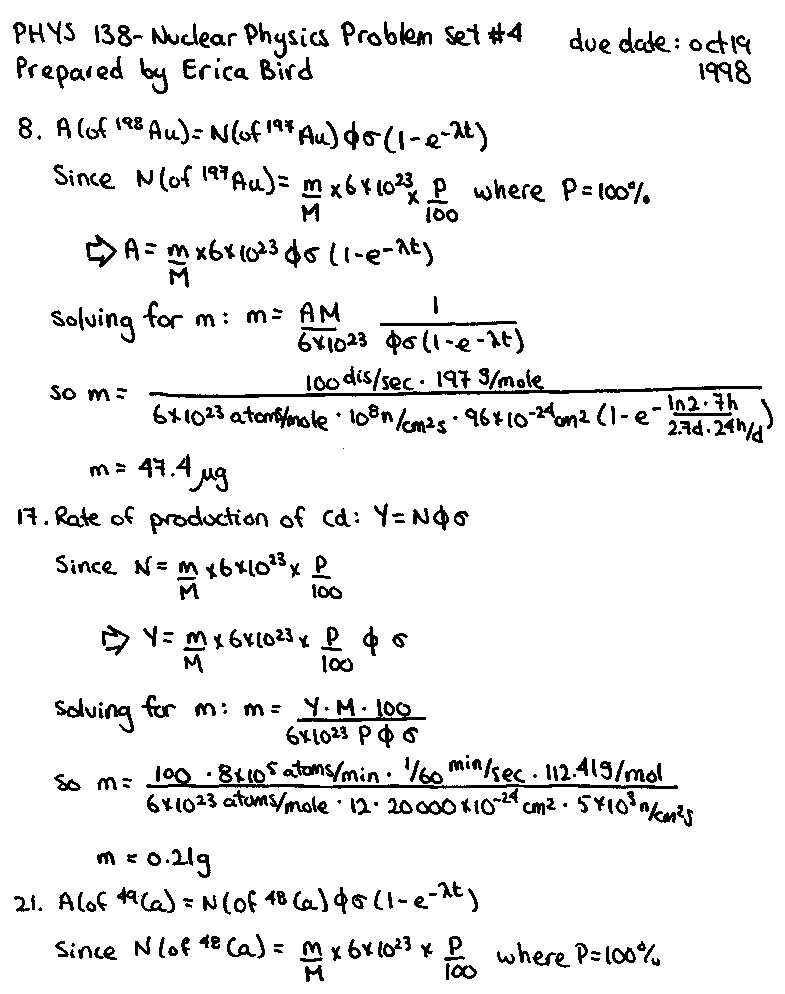 PHYS 138- Nuclear Physics Problem Set #4 due date: oct 19
Prepared by Erica Bird 1998
8. A(of ¹⁹⁸Au)= N(of ¹⁹⁷Au) ϕσ(1-e^-λt)
Since N(of ¹⁹⁷Au)= m/M x 6x10²³ x P/100 where P=100%
⇒ A= m/M x 6x10²³ ϕσ (1-e^-λt)
Solving for m: m= AM/6x10²³ 1/ϕσ(1-e-λt)
so m= 100 dis/sec · 197 g/mole / 6x10²³ atoms/mole · 10⁸n/cm²s · 96x10⁻²⁴cm² (1-e^- ln2·7h/2.7d·24h/d)
m = 47.4 µg
17. Rate of production of Cd: Y=NΦσ
Since N= m/M x 6x10²³ x P/100
⇒ Y= m/M x 6x10²³ x P/100 ϕ σ
Solving for m: m= Y·M·100/6x10²³ P ϕ σ
so m= 100 · 8x10⁵ atoms/min · 1/60 min/sec · 112.41g/mol / 6x10²³ atoms/mole · 12 · 20000x10⁻²⁴ cm² · 5x10³n/cm²s
m = 0.21g
21. A(of ⁴⁹Ca) = N(of ⁴⁸Ca) ϕσ(1-e^-λt)
Since N(of ⁴⁸Ca) = m/M x 6x10²³ x P/100 where P=100%